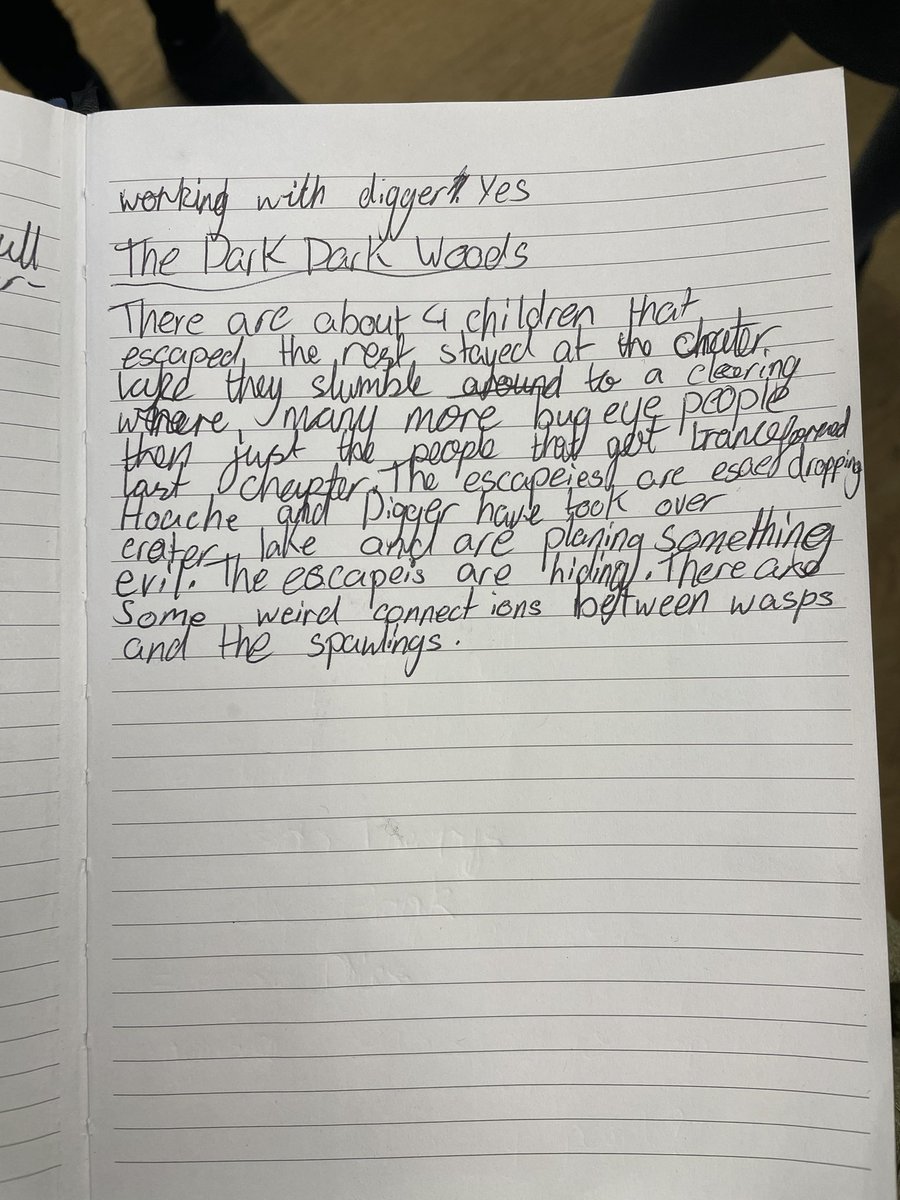 ull
working with digger? Yes
The Dark Dark Woods
There are about 4 children that
escaped, the rest stayed at the chater
lake they slumble around to a cleering
where, many more bug eye people
then just the people that get tranceformed
last chapter. The escapeies are esae dropping
Hoache and Digger have took over
crater lake and are planing something
evil. The escapeis are hiding. There are
some weird connections between wasps
and the spawlings.